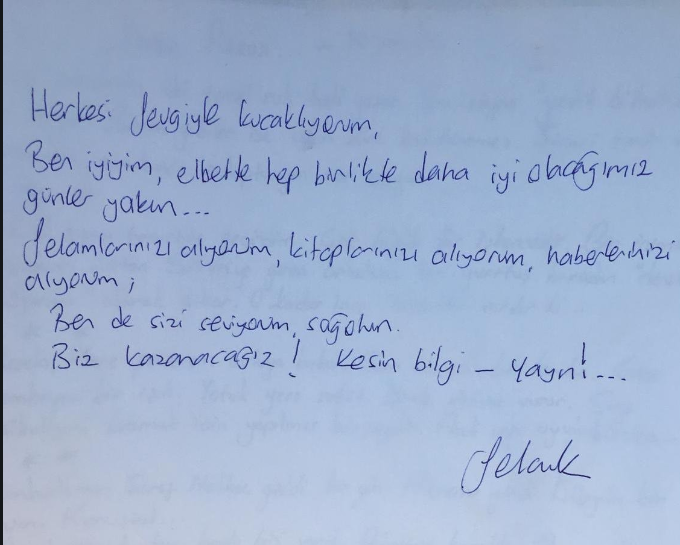 Herkesi sevgiyle kucaklıyorum,
Ben iyiyim, elbette hep birlikte daha iyi olacağımız
günler yakın...
Selamlarınızı alıyorum, kitaplarınızı alıyorum, haberlerinizi
alıyorum;
Ben de sizi seviyorum, sağolun.
Biz kazanacağız! Kesin bilgi – yayın!...
Selçuk